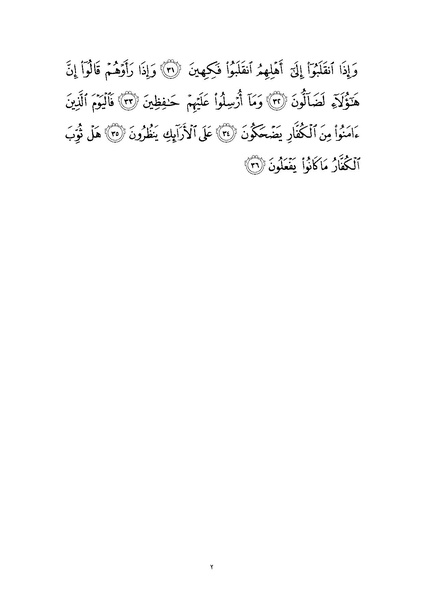 وَإِذَا ٱنقَلَبُوٓا۟ إِلَىٰٓ أَهْلِهِمُ ٱنقَلَبُوا۟ فَكِهِينَ ٣١ وَإِذَا رَأَوْهُمْ قَالُوٓا۟ إِنَّ
هَـٰٓؤُلَآءِ لَضَآلُّونَ ٣٢ وَمَآ أُرْسِلُوا۟ عَلَيْهِمْ حَـٰفِظِينَ ٣٣ فَٱلْيَوْمَ ٱلَّذِينَ
ءَامَنُوا۟ مِنَ ٱلْكُفَّارِ يَضْحَكُونَ ٣٤ عَلَى ٱلْأَرَآئِكِ يَنظُرُونَ ٣٥ هَلْ ثُوِّبَ
ٱلْكُفَّارُ مَا كَانُوا۟ يَفْعَلُونَ ٣٦
٢